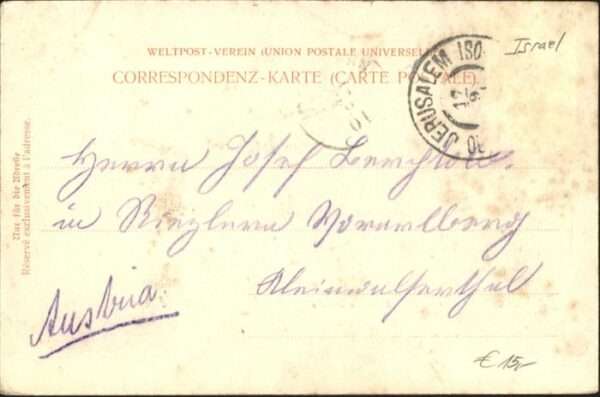 WELTPOST-VEREIN (UNION POSTALE UNIVERSELLE)
CORRESPONDENZ-KARTE (CARTE POSTALE).
JERUSALEM
Israel
Nur für die Adresse
Réservé exclusivement à l'adresse.
Herrn Josef
in Riezlern Vorarlberg
Kleinwalserthal
Austria.
€ 15,-